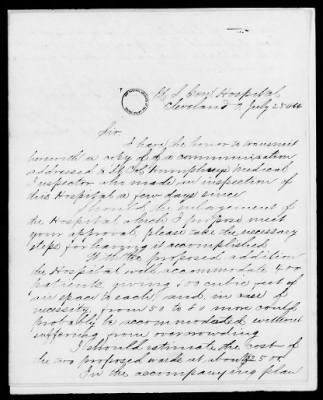 U. S. Genl Hospital
Cleveland O July 28th
Sir.
I have the honor to transmit
herewith a copy of a communication
addressed to Humphreys Medical
Inspector who made an inspection of
this Hospital a few days since.
Should the enlargement of
the Hospital which I propose meet
your approval, please take the necessary
steps for having it accomplished.
With the proposed addition
the Hospital will accommodate 400
patients giving 800 cubic feet of
air space to each, and in case of
necessity, from 50 to 60 more could
probably be accommodated without
suffering from overcrowding
I should estimate the cost of
the two proposed wards at about
In the accompanying plan